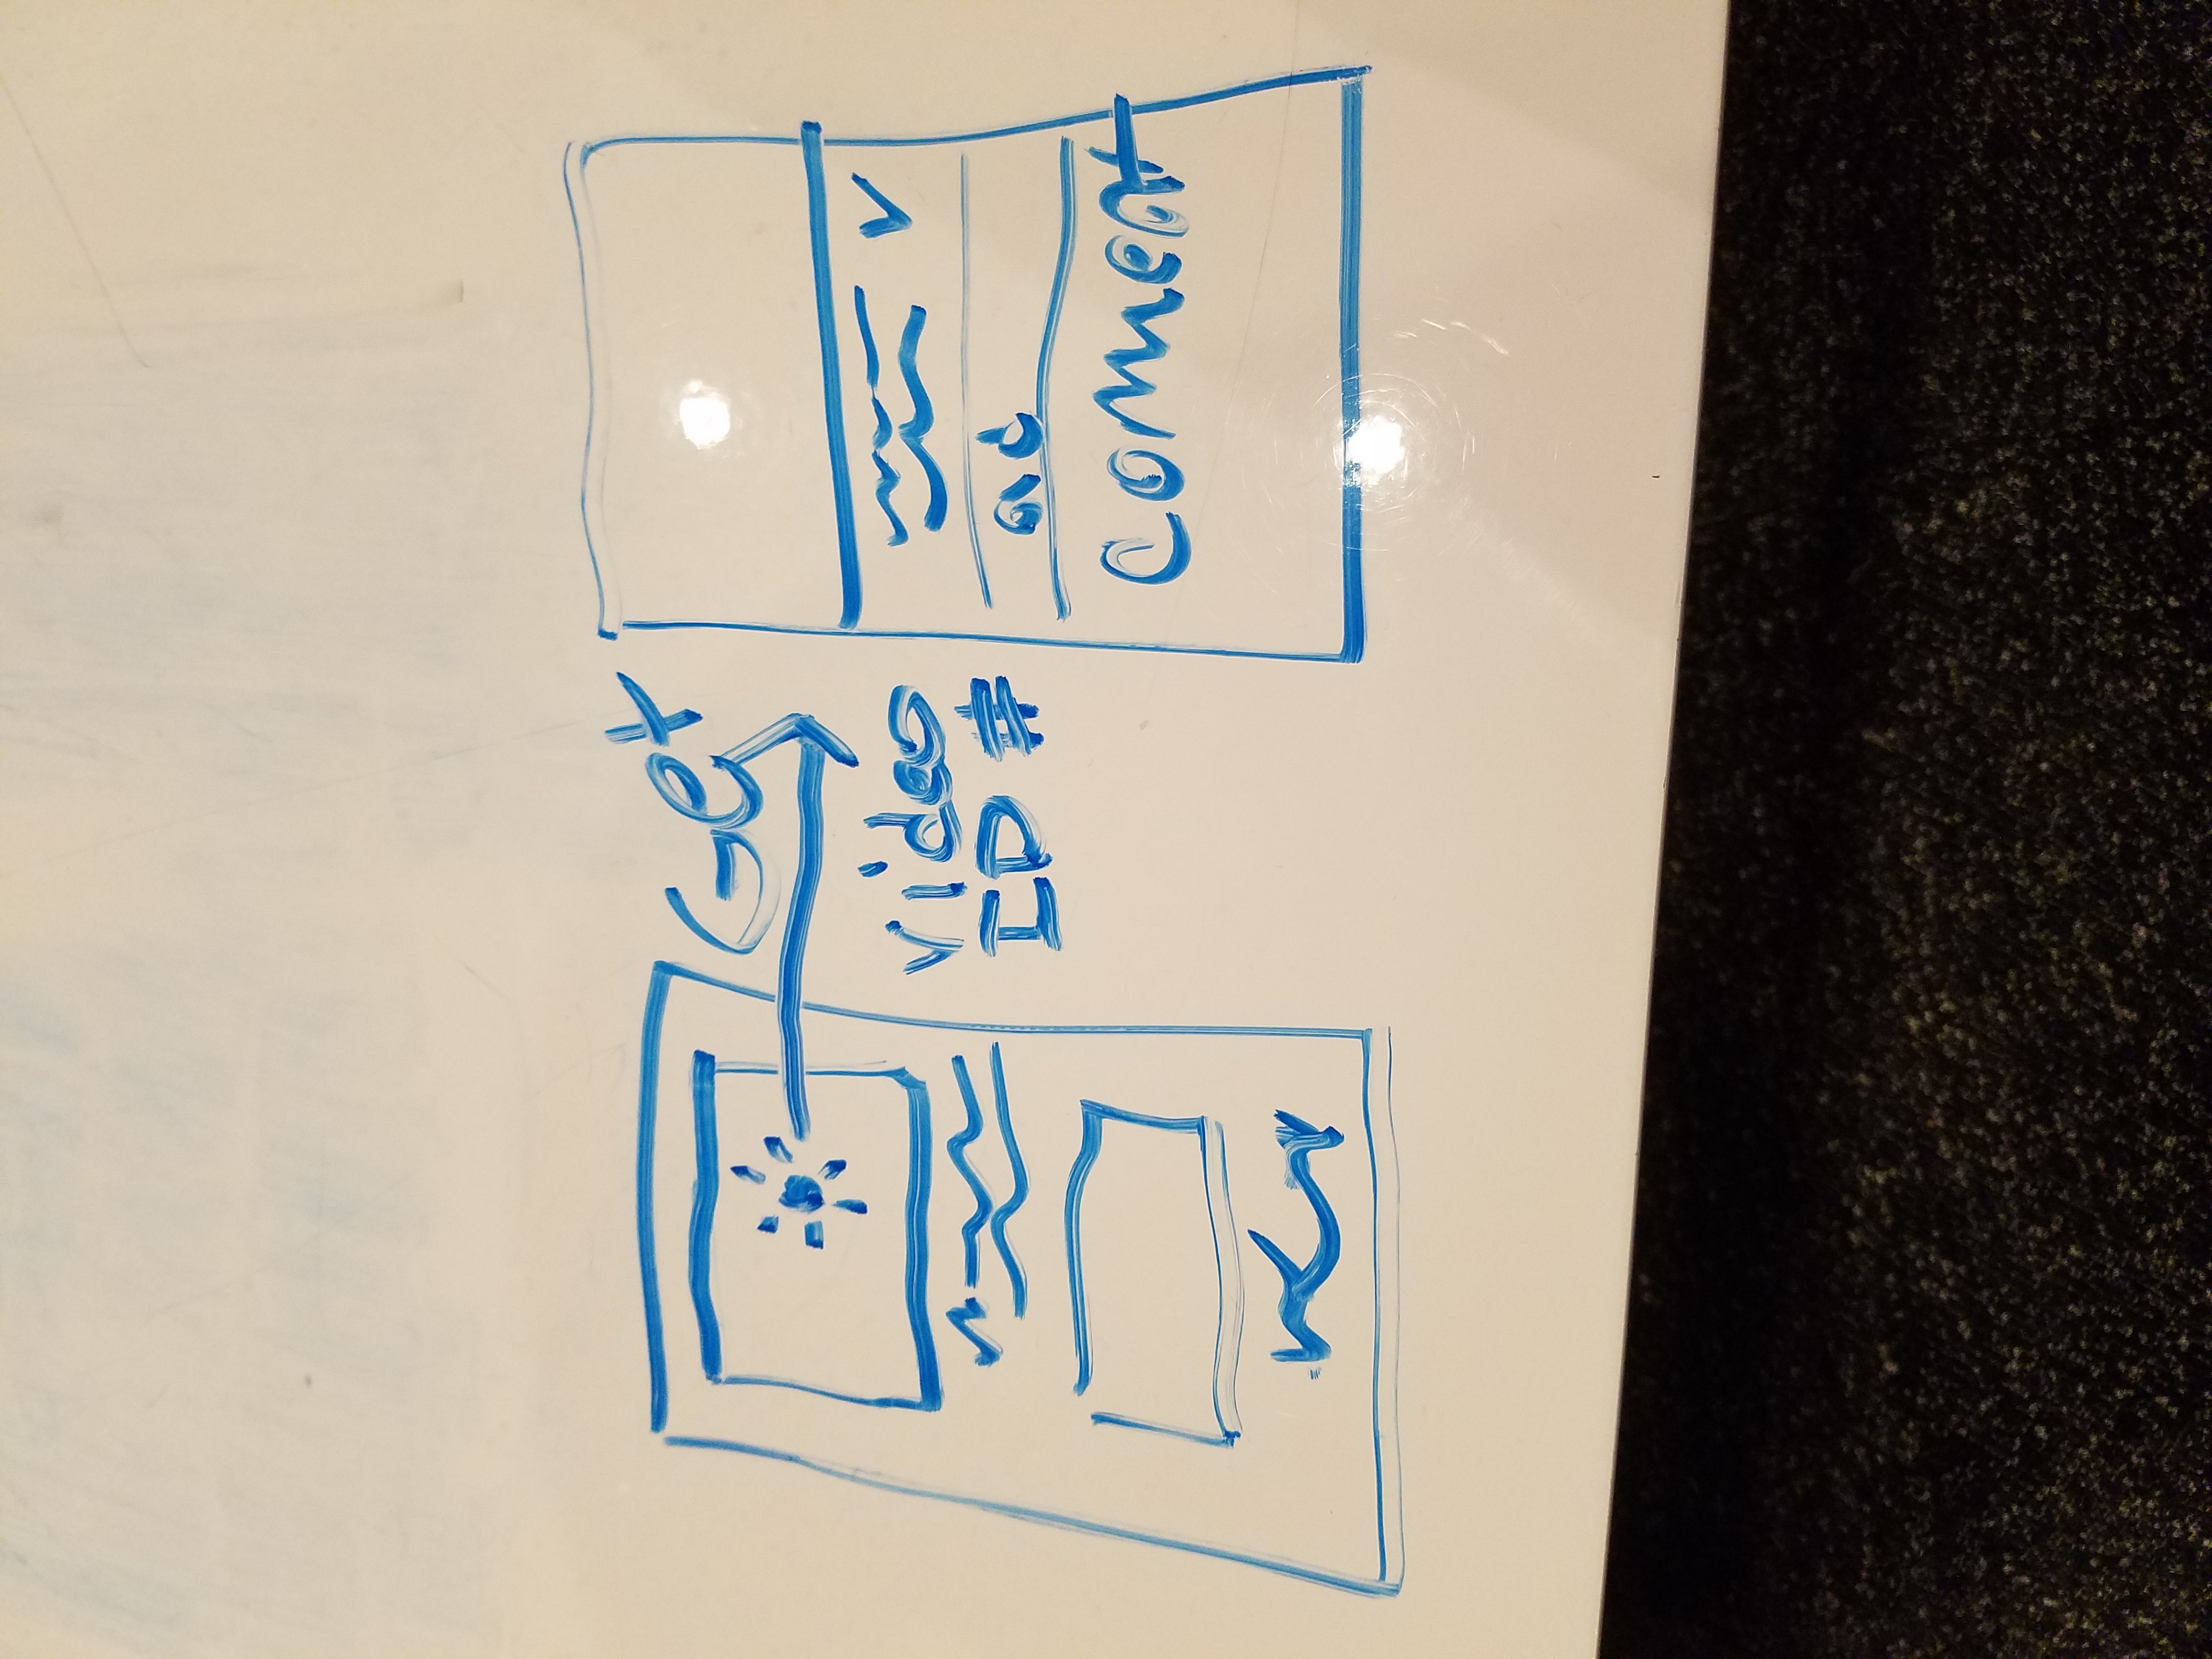 Get
video
ID #
ad
comment